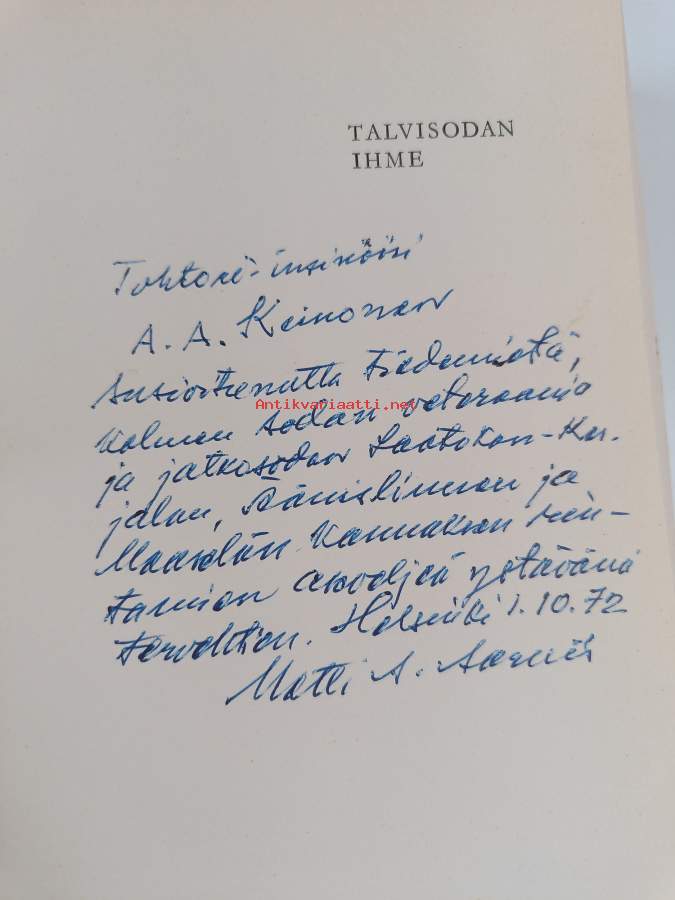 TALVISODAN
IHME
Tohtori-insinööri
A. A. Keinonen
Ansioitunutta tiedemiestä,
Antikvariaatti.net
kolmen sodan veteraania
ja jatkosodan Laatokan-Kar-
jalan, Äänislinnan ja
Maaselän Kannaksen rin-
taman aseveljeä ystävänä
tervehtien. Helsinki 1.10.72
Matti A. Aarnio